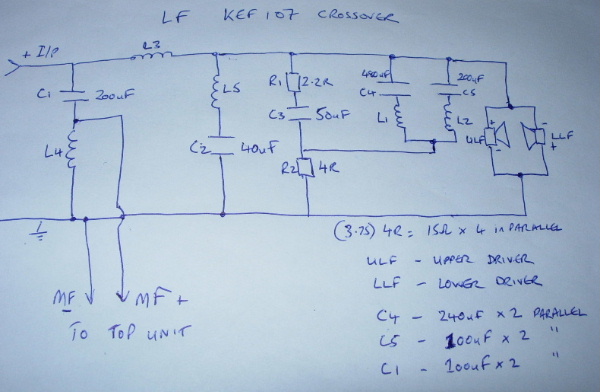 LF KEF 107 CROSSOVER
+ I/P
L3
C1 200uF
L4
L5
C2 40uF
R1 2.2R
C3 50uF
R2 4R
480uF
C4
L1
200uF
C5
L2
+
-
ULF
-
+
LLF
MF -
MF +
TO TOP UNIT
(3.75) 4R = 15Ω x 4 in PARALLEL
ULF - UPPER DRIVER
LLF - LOWER DRIVER
C4 - 240uF x 2 PARALLEL
C5 - 100uF x 2 "
C1 - 100uF x 2 "